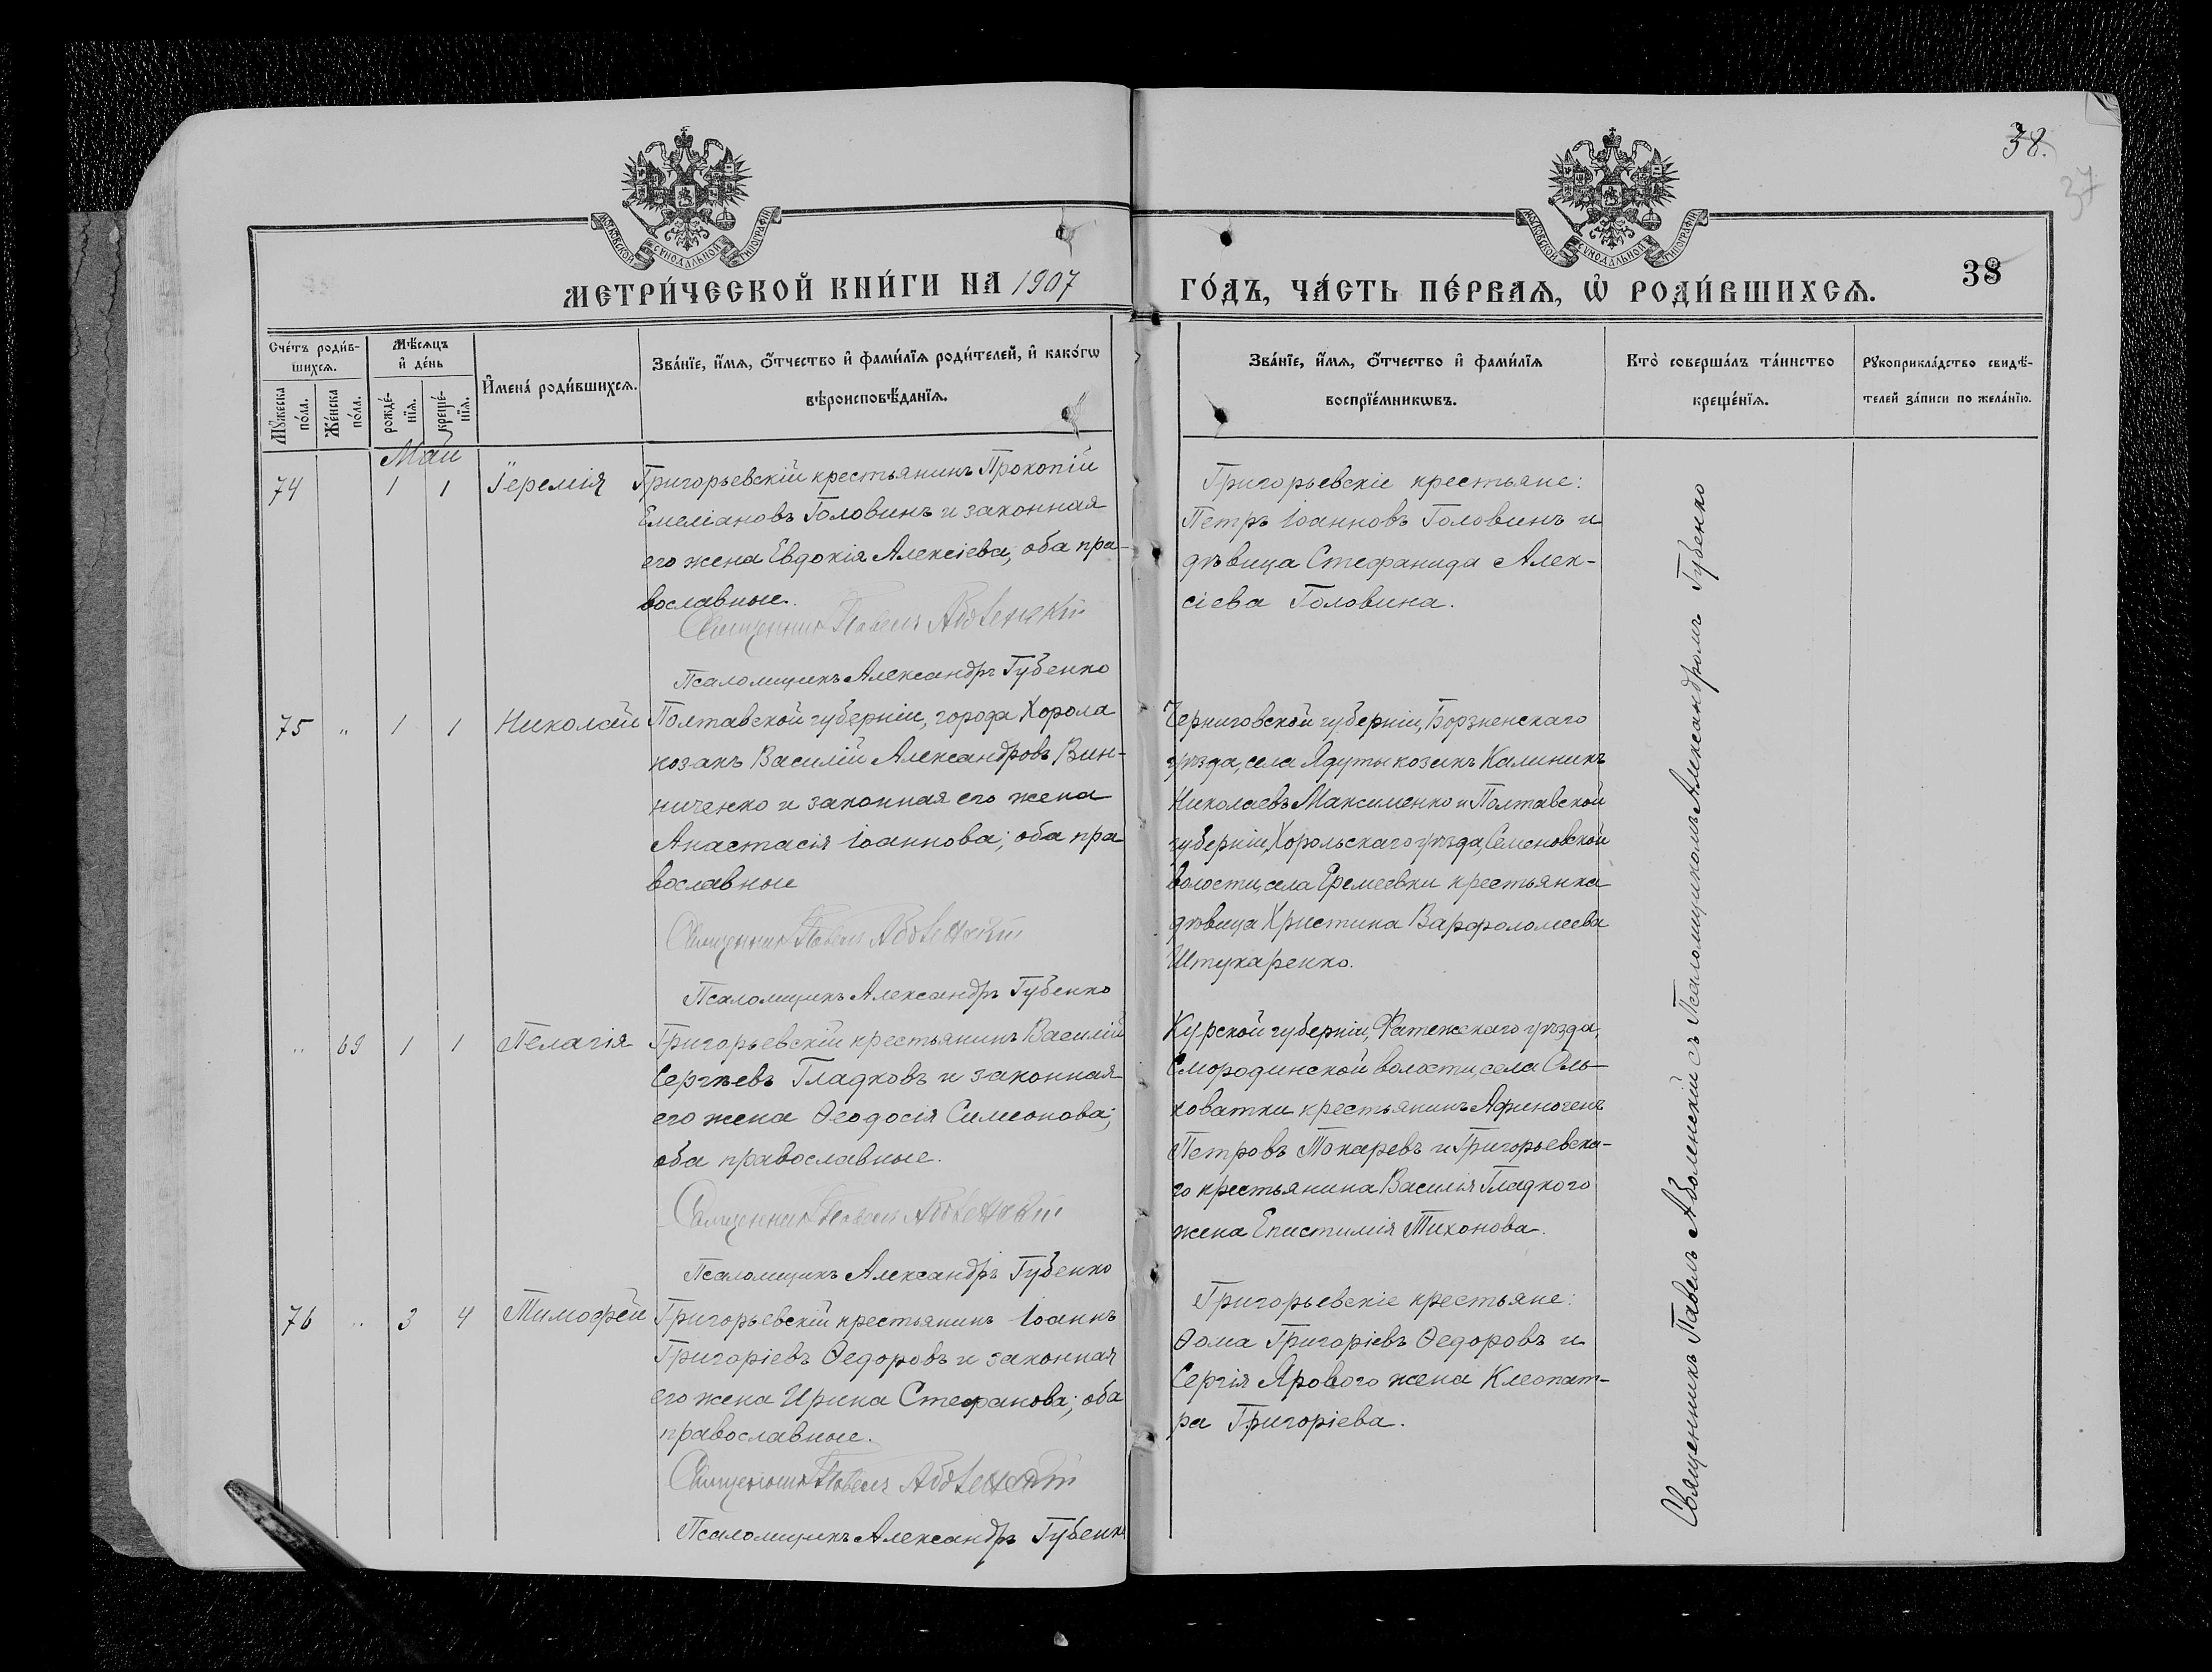 38.
37
МОСКОВСКОЙ СѴНОДАЛЬНОЙ ТИПОГРАФІИ
МОСКОВСКОЙ СѴНОДАЛЬНОЙ ТИПОГРАФІИ
МЕТРИ́ЧЕСКОЙ КНИ́ГИ НА 1907
ГО́ДЪ, ЧА́СТЬ ПЕ́РВАѦ, Ѽ РОДИ́ВШИХСѦ.
38
Сче́тъ роди́в-
шихсѧ.
Мꙋ́жеска
по́ла.
Же́нска
по́ла.
Мѣ́сѧцъ
и҆ де́нь
рожде́-
нїѧ.
креще́-
нїѧ.
И҆мена̀ роди́вшихсѧ.
Зва́нїе, и҆́мѧ, ѻ҆́тчество и҆ фами́лїѧ роди́телей, и҆ како́гѡ
вѣроисповѣ́данїѧ.
Зва́нїе, и҆́мѧ, ѻ҆́тчество и҆ фами́лїѧ
воспрїе́мникѡвъ.
Кто̀ соверша́лъ та́инство
креще́нїѧ.
Рꙋкоприкла́дство свидѣ́-
телей за́писи по жела́нїю.
Май
74 1 1 Іеремія
Григорьевскій крестьянинъ Прокопій
Емеліановъ Головинъ и законная
его жена Евдокія Алексіева, оба пра-
вославные.
Священникъ Павелъ Аболенскій
Псаломщикъ Александръ Губенко
Григорьевскіе крестьяне:
Петръ Іоанновъ Головинъ и
дѣвица Стефанида Алек-
сіева Головина.
75 " 1 1 Николай
Полтавской губерніи, города Хорола
козакъ Василій Александровъ Вин-
ниченко и законная его жена
Анастасія Іоаннова; оба пра
вославные
Священникъ Павелъ Аболенскій
Псаломщикъ Александръ Губенко
Черниговской губерніи, Борзненскаго
уѣзда, села Ядуты козакъ Калиникъ
Николаевъ Максименко и Полтавской
губерніи, Хорольскаго уѣзда, Семеновской
волости, села Еремеевки крестьянка
дѣвица Христина Варфоломеева
Штукаренко.
" 69 1 1 Пелагія
Григорьевскій крестьянинъ Василій
Сергѣевъ Гладковъ и законная
его жена Ѳеодосія Симеонова;
оба православные.
Священникъ Павелъ Аболенскій
Псаломщикъ Александръ Губенко
Курской губерніи, Фатежскаго уѣзда,
Смородинской волости, села Оль-
ховатки крестьянинъ Афиногенъ
Петровъ Токаревъ и Григорьевска-
го крестьянина Василія Гладкого
жена Епистимія Тихонова.
76 " 3 4 Тимофей
Григорьевскій крестьянинъ Іоаннъ
Григоріевъ Ѳедоровъ и законная
его жена Ирина Стефанова; оба
православные.
Священникъ Павелъ Аболенскій
Псаломщикъ Александръ Губенко
Григорьевскіе крестьяне:
Ѳома Григоріевъ Ѳедоровъ и
Сергія Ярового жена Клеопат-
ра Григоріева.
Священникъ Павелъ Аболенскій съ Псаломщикомъ Александромъ Губенко